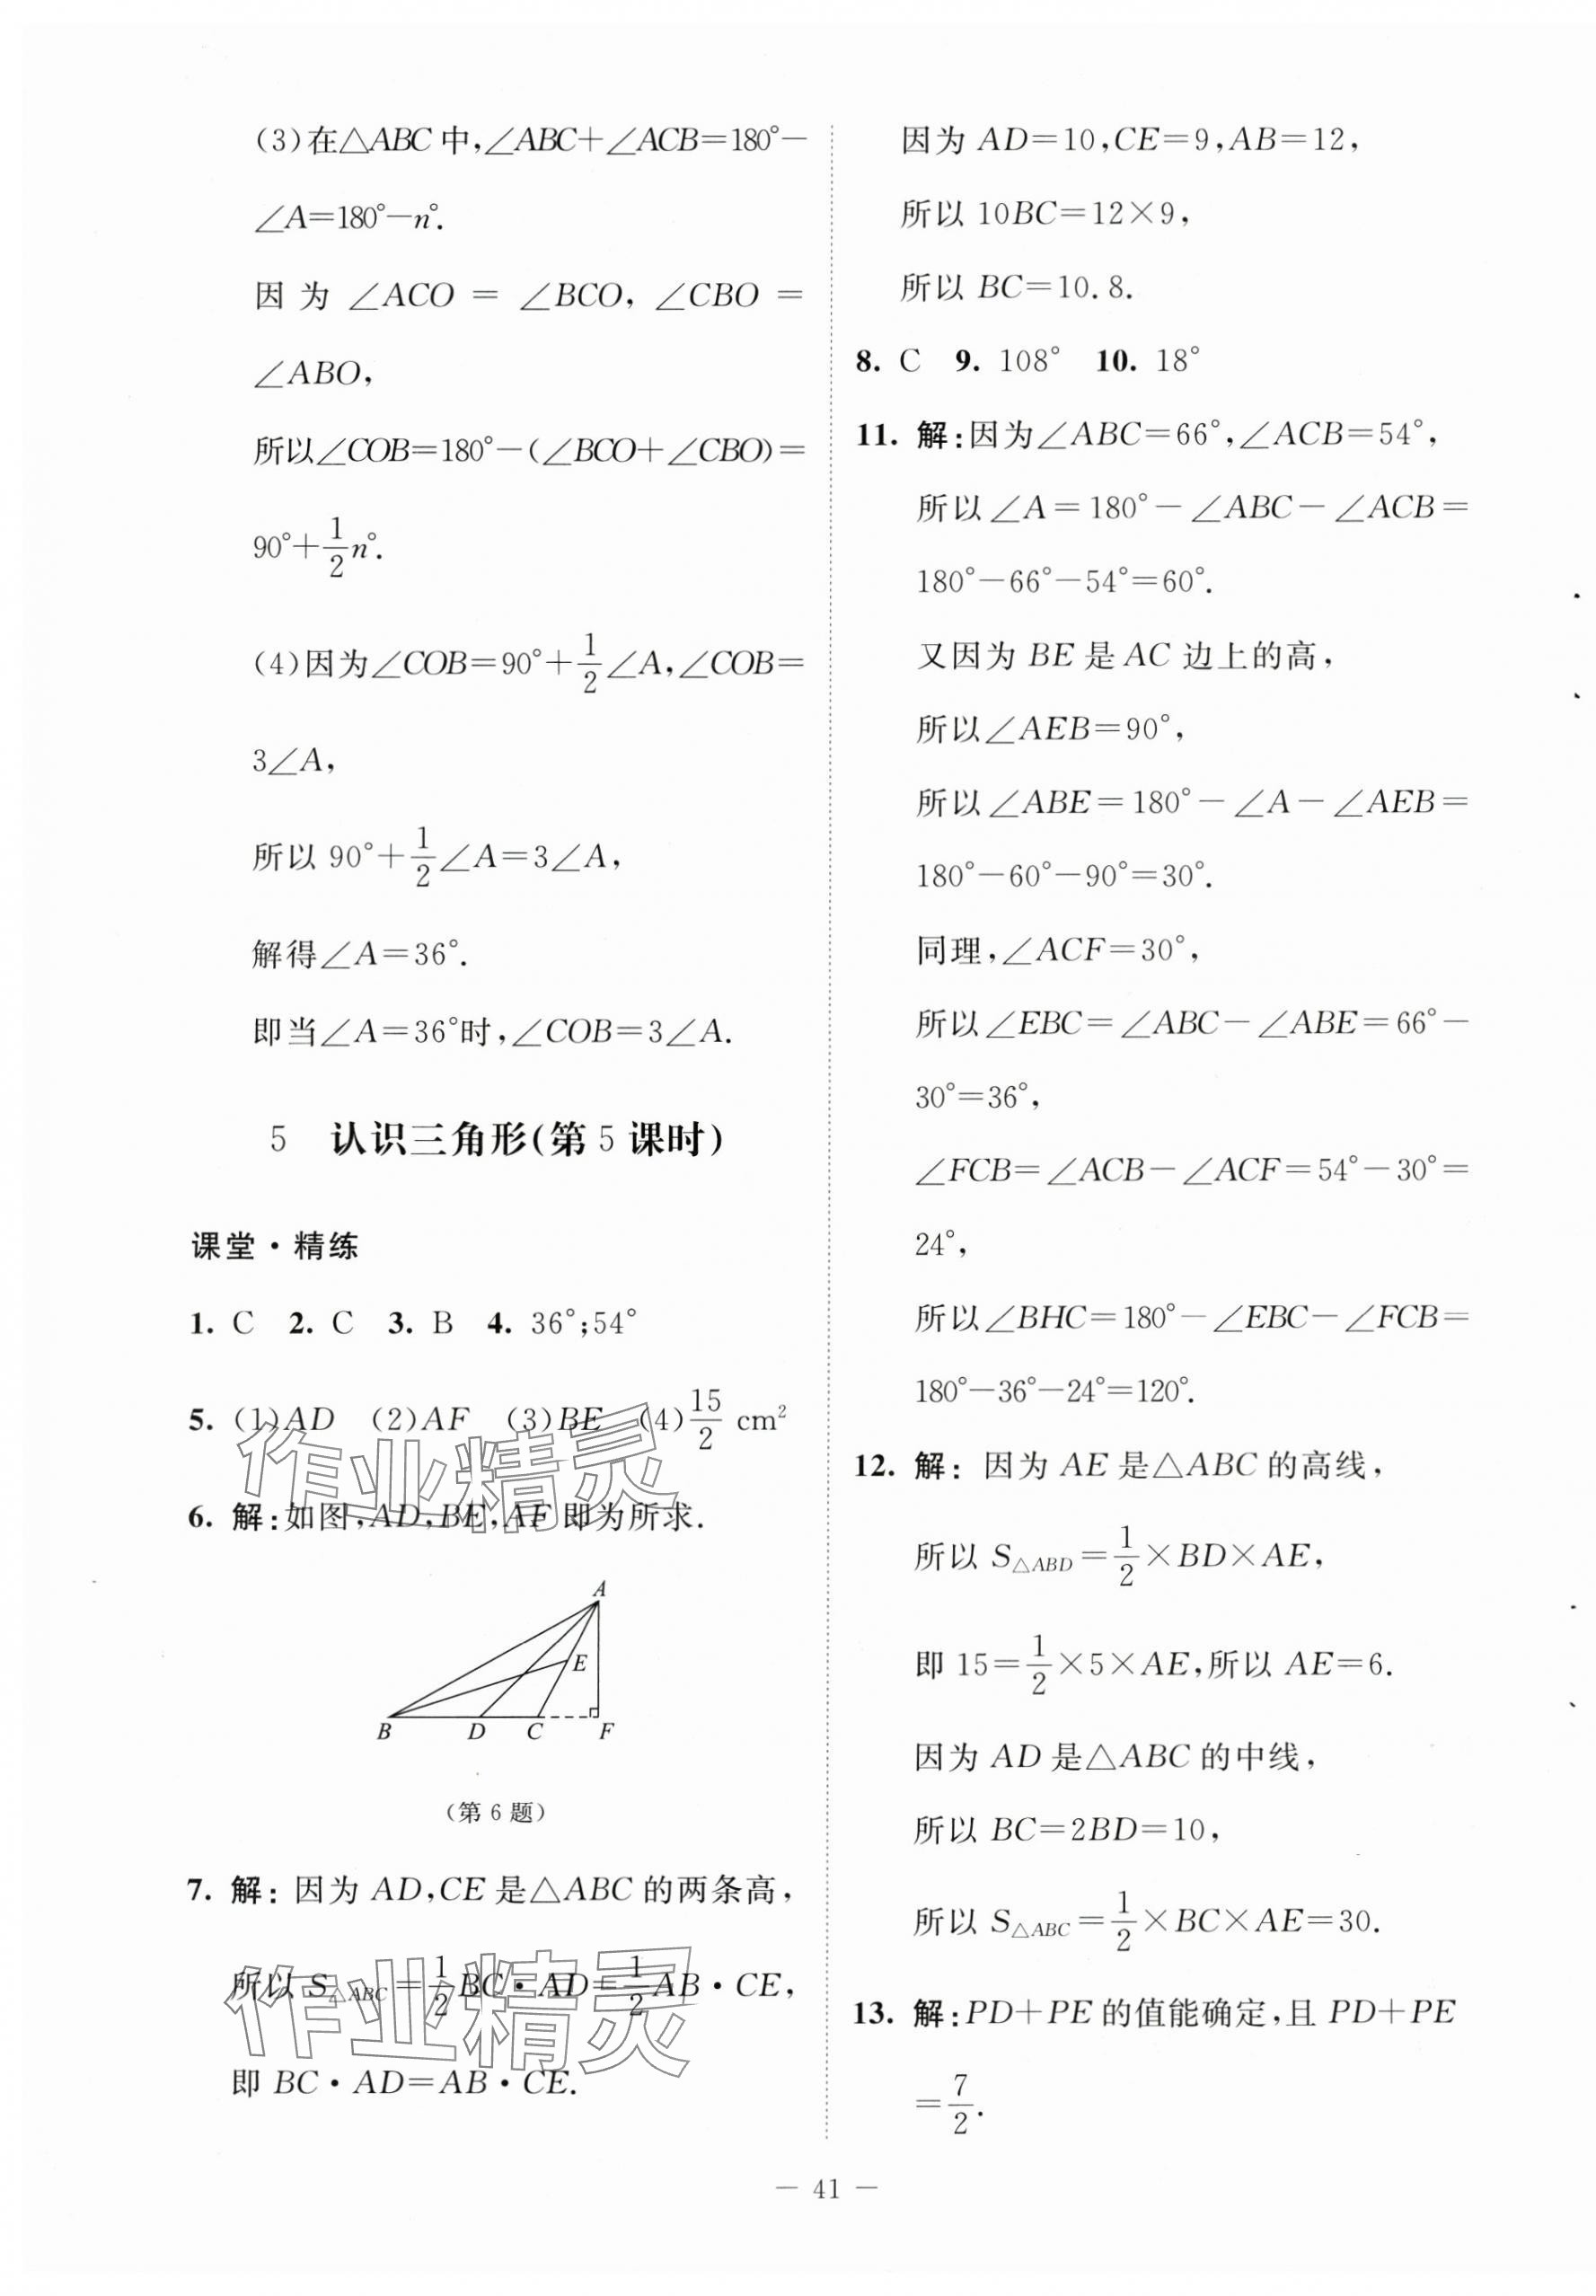 (3)在△ABC中,∠ABC+∠ACB=180°−
∠A=180°−n°.
因为 ∠ACO = ∠BCO, ∠CBO =
∠ABO,
所以∠COB=180°−(∠BCO+∠CBO)=
90°+1/2 n°.
(4)因为∠COB=90°+1/2∠A,∠COB=
3∠A,
所以 90°+1/2∠A=3∠A,
解得∠A=36°.
即当∠A=36°时,∠COB=3∠A.
5 认识三角形(第5课时)
课堂·精练
1. C 2. C 3. B 4. 36°;54°
5. (1)AD (2)AF (3)BE (4)15/2 cm²
6. 解:如图,AD,BE,AF即为所求.
A
E
B D C F
(第6题)
7. 解: 因为 AD,CE 是△ABC 的两条高,
所以 S△ABC=1/2BC·AD=1/2AB·CE,
即 BC·AD=AB·CE.
作业精灵
作业精灵
因为 AD=10,CE=9,AB=12,
所以 10BC=12×9,
所以 BC=10.8.
8. C 9. 108° 10. 18°
11. 解:因为∠ABC=66°,∠ACB=54°,
所以∠A=180°−∠ABC−∠ACB=
180°−66°−54°=60°.
又因为 BE 是 AC 边上的高,
所以∠AEB=90°,
所以∠ABE=180°−∠A−∠AEB=
180°−60°−90°=30°.
同理,∠ACF=30°,
所以∠EBC=∠ABC−∠ABE=66°−
30°=36°,
∠FCB=∠ACB−∠ACF=54°−30°=
24°,
所以∠BHC=180°−∠EBC−∠FCB=
180°−36°−24°=120°.
12. 解: 因为 AE 是△ABC 的高线,
所以 S△ABD=1/2×BD×AE,
即 15=1/2×5×AE,所以 AE=6.
因为 AD 是△ABC 的中线,
所以 BC=2BD=10,
所以 S△ABC=1/2×BC×AE=30.
13. 解:PD+PE 的值能确定,且 PD+PE
=7/2.
— 41 —